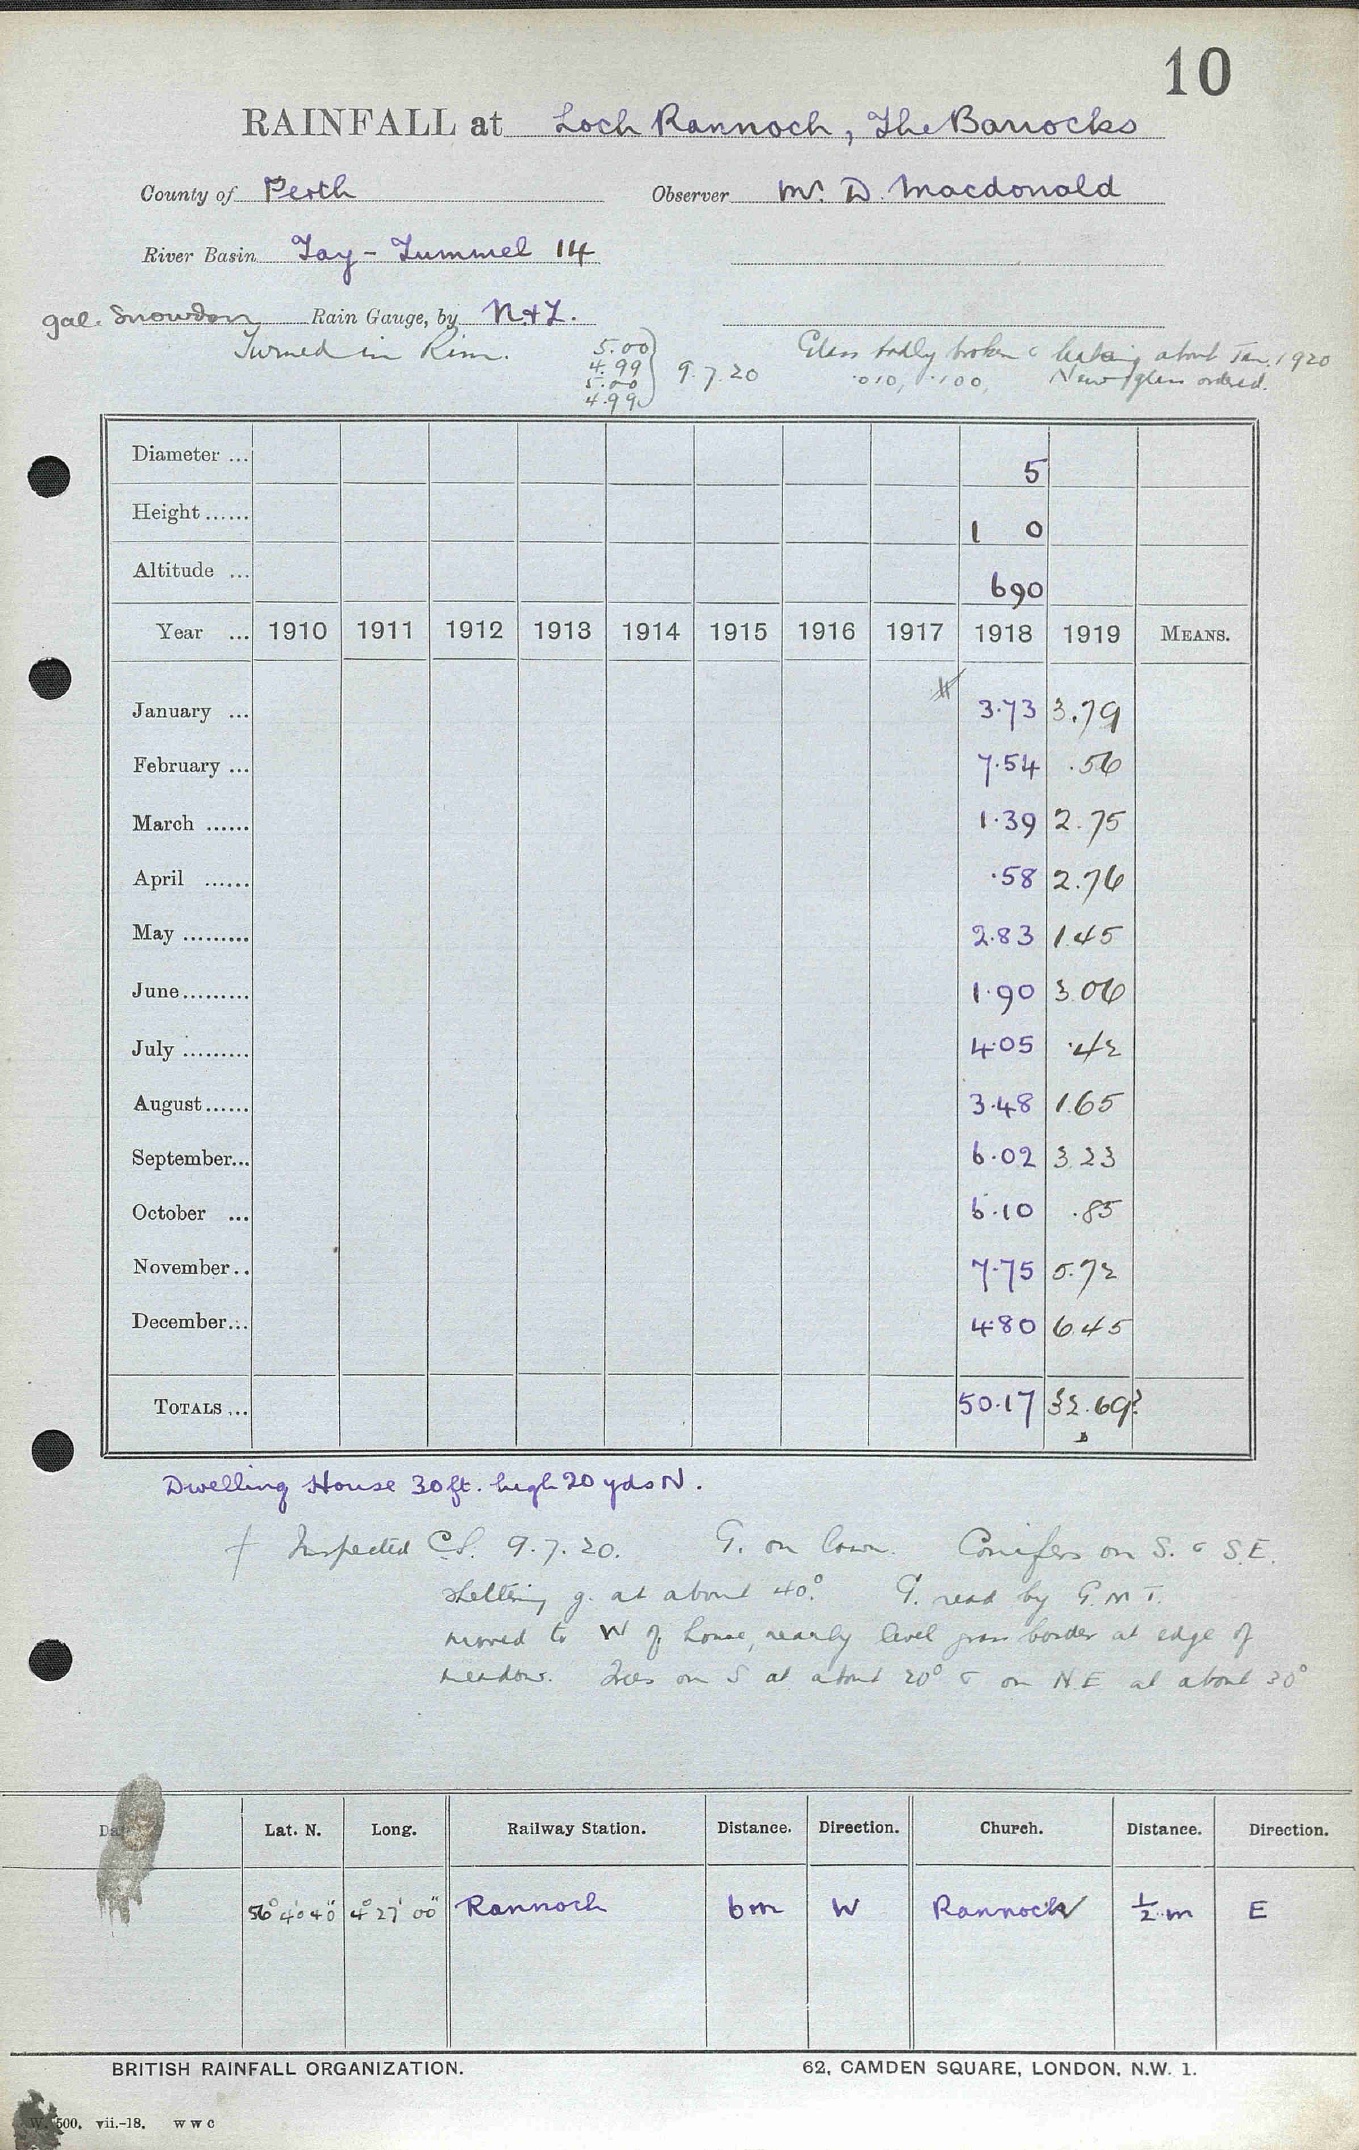 10
RAINFALL at Loch Rannoch, The Barrocks
County of Perth Observer Mr. D. Macdonald
River Basin Tay - Tummel 14
gal. Snowdon Rain Gauge, by N. & Z.
Turned in Rim. 5.00 4.99 5.00 4.99 } 9.7.20 Glass badly broken & leaking about Jan. 1920
.010, .100, New glass ordered.
Diameter ... 5
Height ...... 1 0
Altitude ... 690
Year ... 1910 1911 1912 1913 1914 1915 1916 1917 1918 1919 MEANS.
January ... 3.73 3.79
February ... 7.54 .56
March ...... 1.39 2.75
April ...... .58 2.76
May ......... 2.83 1.45
June ......... 1.90 3.06
July ......... 4.05 .42
August ...... 3.48 1.65
September... 6.02 3.23
October ... 6.10 .85
November.. 7.75 5.72
December... 4.80 6.45
TOTALS ... 50.17 32.69?
Dwelling House 30 ft. high 20 yds N.
† Inspected C.S. 9.7.20. G. on lawn. Conifers on S. & S.E.
sheltering g. at about 40° G. read by G.M.T.
moved to W of house, nearly level grass border at edge of
meadow. Trees on S at about 20° & on N.E at about 30°
Lat. N. Long. Railway Station. Distance. Direction. Church. Distance. Direction.
56° 40' 40" 4° 27' 00" Rannoch 6m W Rannoch ½ m E
BRITISH RAINFALL ORGANIZATION. 62, CAMDEN SQUARE, LONDON, N.W. 1.
W. 500. vii.-18. W W C